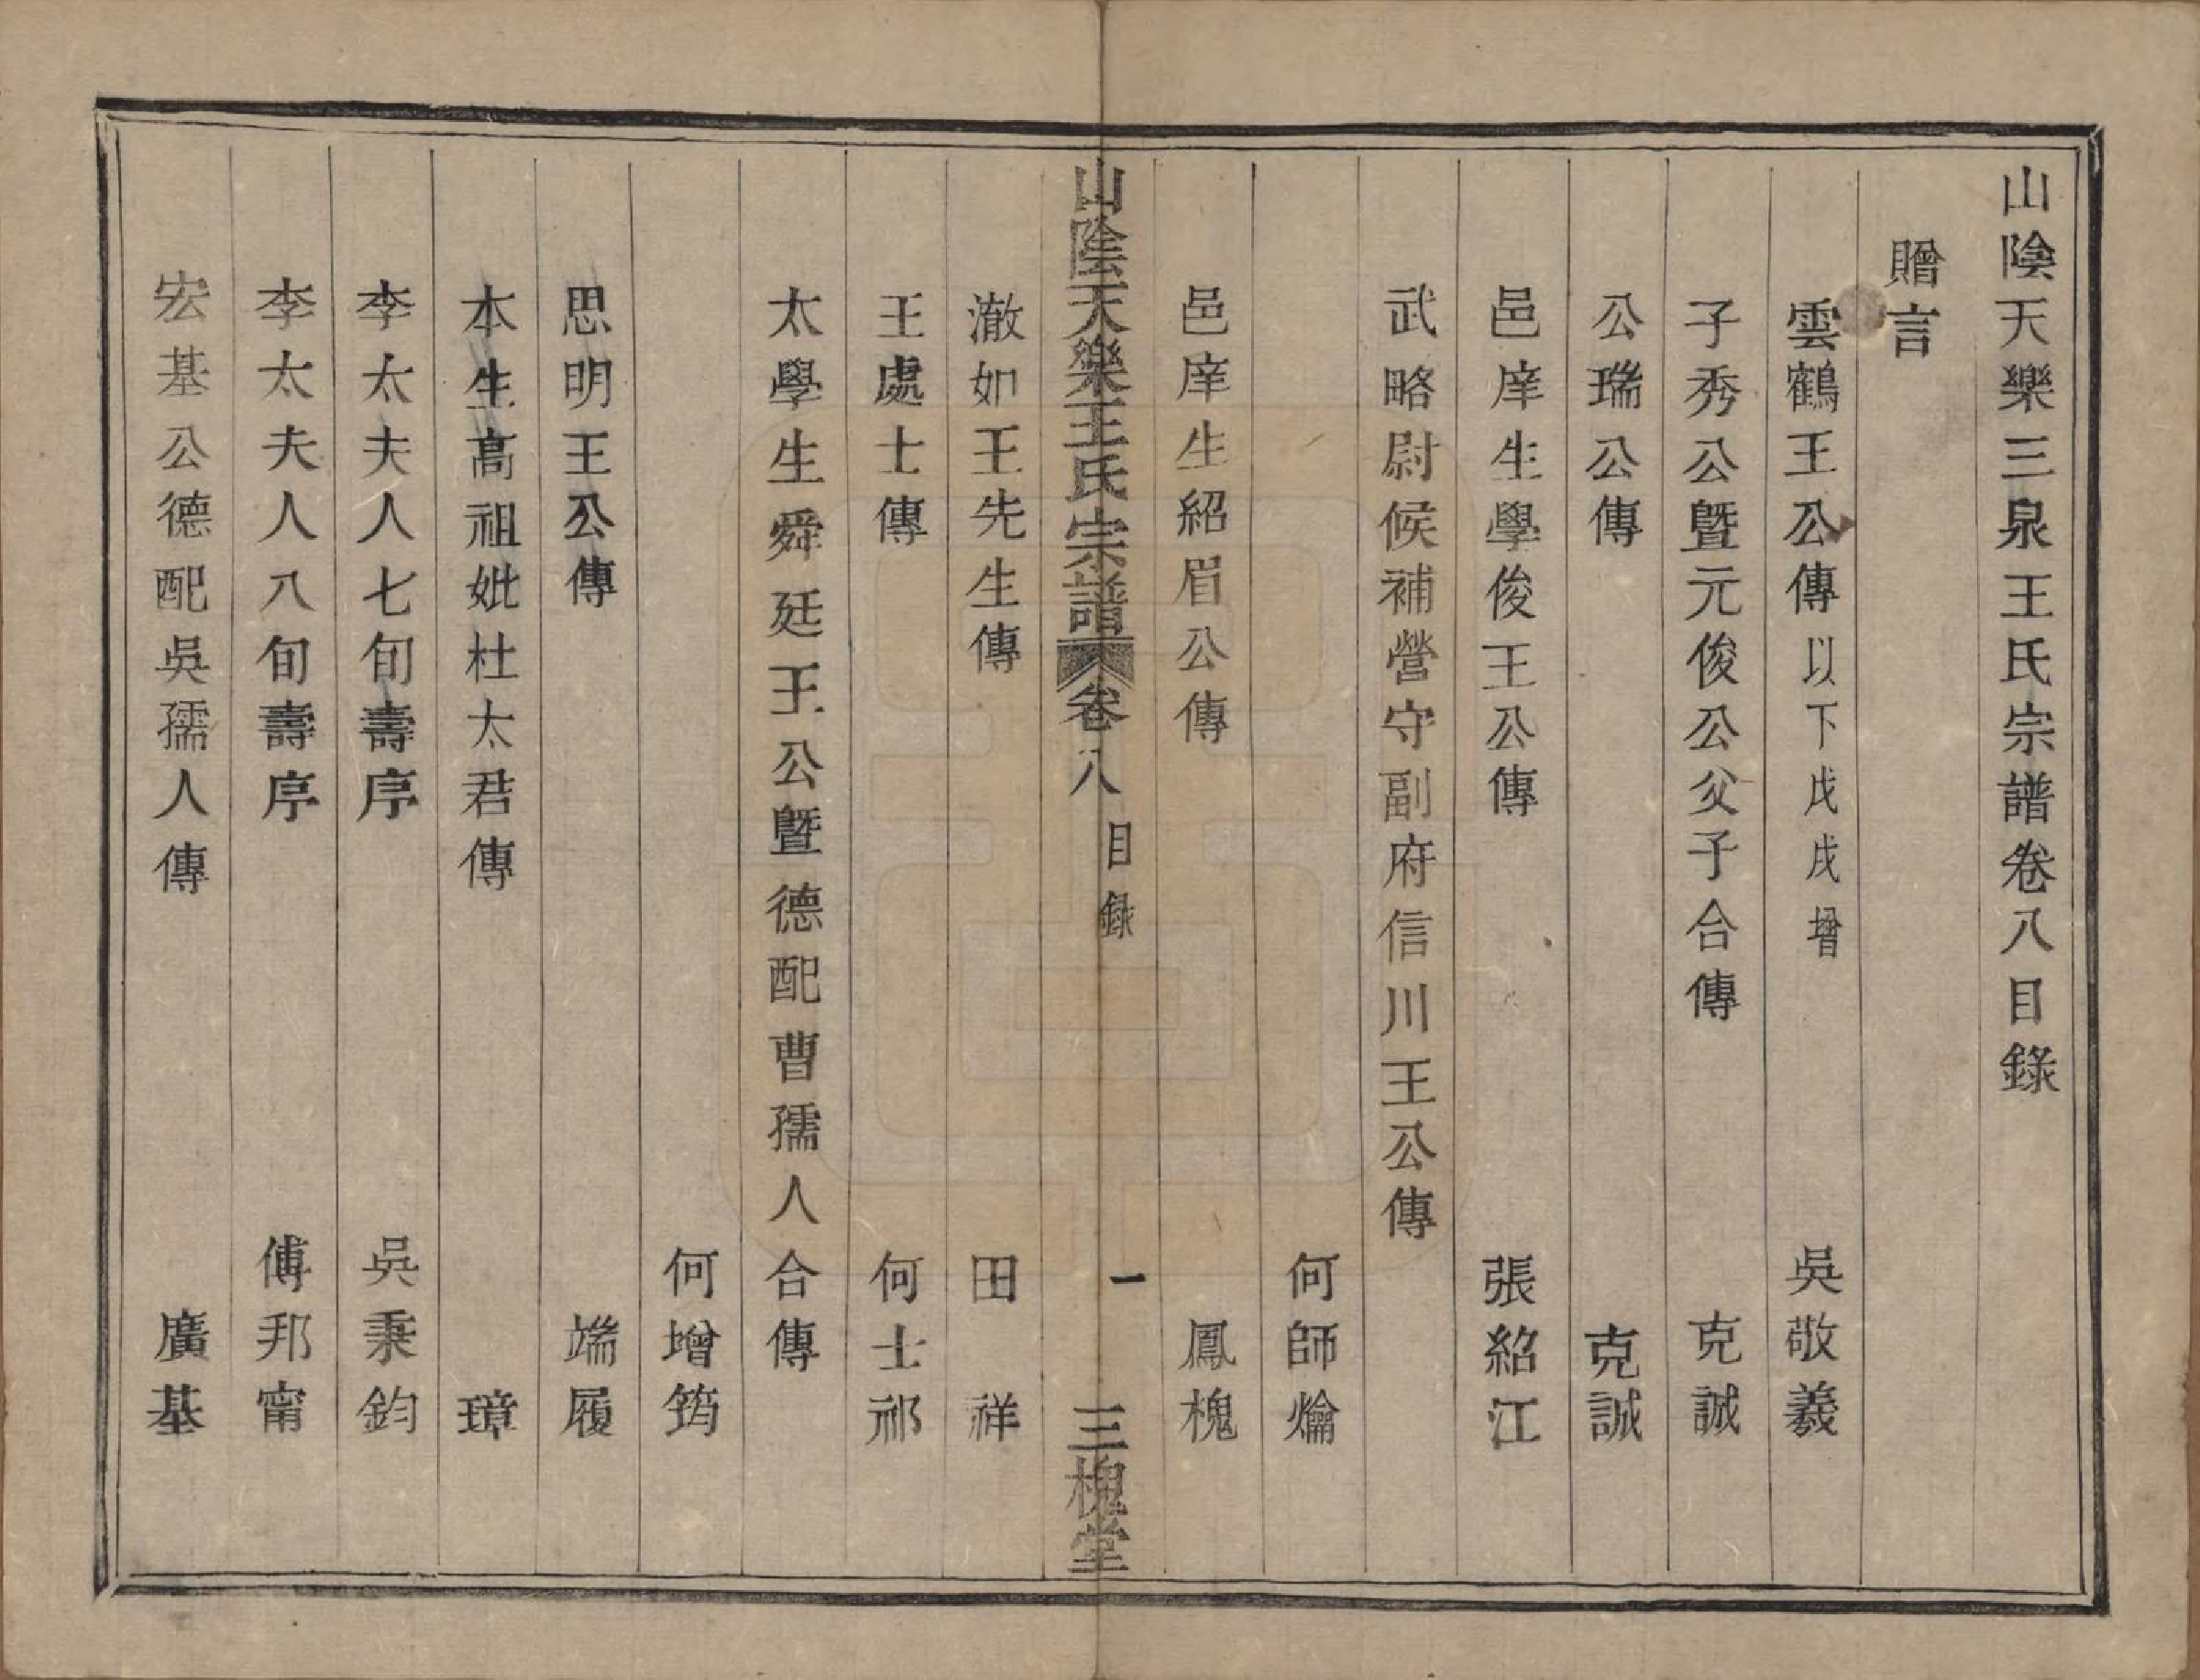 山陰天樂三泉王氏宗譜卷八目錄
贈言
雲鶴王公傳以下戊戌增 吳敬羲
子秀公暨元俊公父子合傳 克誠
公瑞公傳 克誠
邑庠生學俊王公傳 張紹江
武略尉候補營守副府信川王公傳
何師爚
邑庠生紹眉公傳 鳳槐
山陰天樂王氏宗譜 卷八 目錄 一 三槐堂
澈如王先生傳 田祥
王處士傳 何士祁
太學生舜廷王公暨德配曹孺人合傳
何增筠
思明王公傳 端履
本生高祖妣杜太君傳 璋
李太夫人七旬壽序 吳秉鈞
李太夫人八旬壽序 傅邦甯
宏基公德配吳孺人傳 廣基